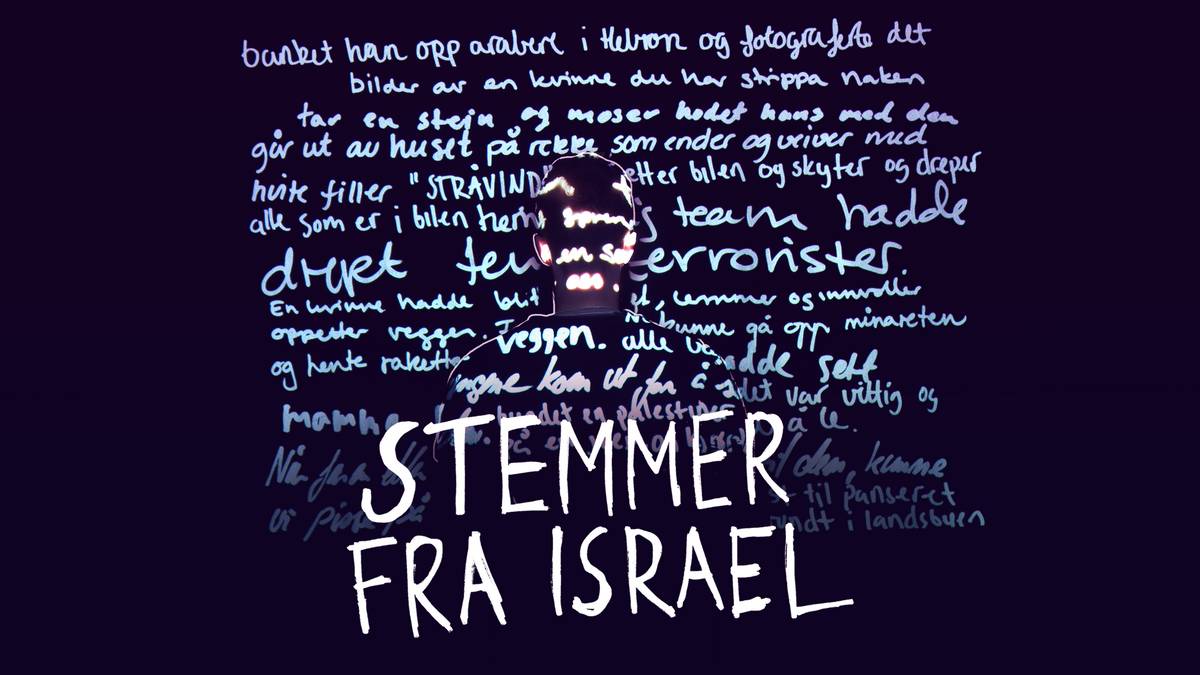 banket han opp arabere i Hebron og fotograferte det
bilder av en kvinne du har strippa naken
tar en stein og moser hodet hans med den
går ut av huset på rekke som ender og veiver med
hvite filler "STRÅVIND etter bilen og skyter og dreper
alle som er i bilen team hadde
drept terrorister.
En kvinne hadde lemmer og innvoller
oppetter veggen. kunne gå opp minareten
og hente veggen. alle
kom ut for å sett
mamma en det var vittig og
å le.
Når dem, kunne
vi til panseret
rundt i landsbyen
STEMMER
FRA ISRAEL